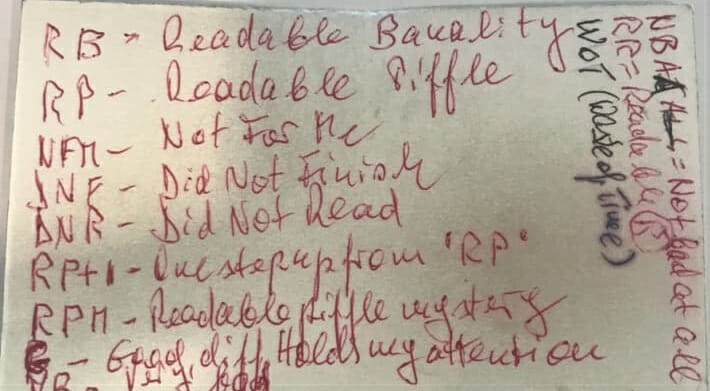 RB - Readable Banality
RP - Readable Piffle
NFM - Not For Me
DNF - Did Not Finish
DNR - Did Not Read
RP+1 - One step up from "RP"
RPM - Readable piffle mystery
G - Good, diff, Holds my attention
WOT (Waste of Time)
RR = Readable
NBAA = Not bad at all